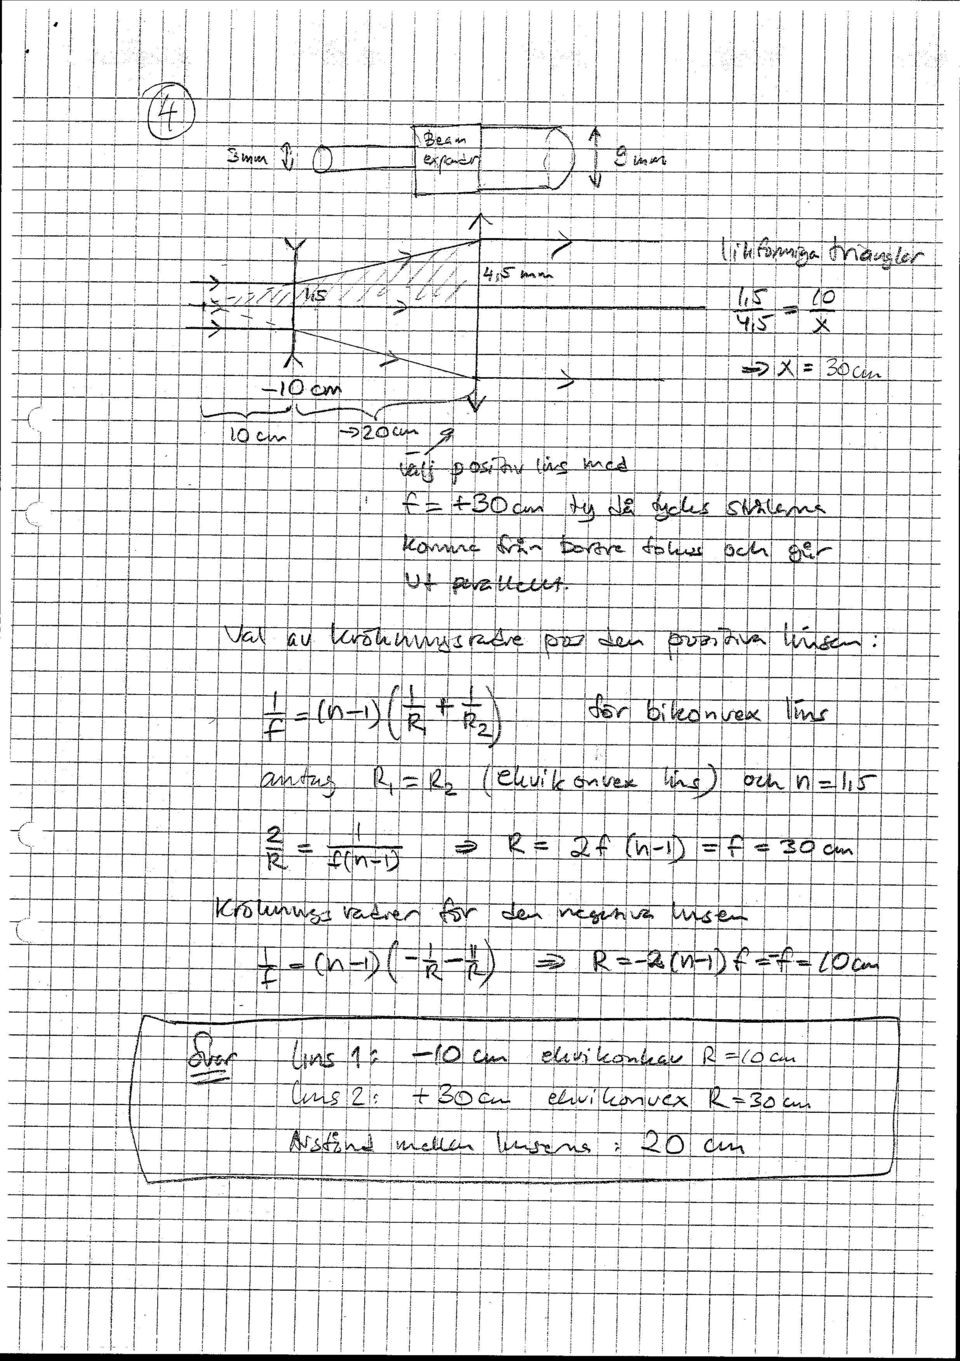 4
3mm
Beam
expander
9 mm
4,5 mm
1,5
likformiga trianglar
1,5/4,5 = 10/x
⇒ x = 30 cm
-10 cm
10 cm
→20 cm
välj positiv lins med
f = +30 cm ty då tycks strålarna
komma från bortre fokus och går
ut parallellt.
Val av krökningsradie pos den positiva linsen:
1/f = (n-1)(1/R₁ + 1/R₂) för bikonvex lins
antag R₁ = R₂ (ekvikonvex lins) och n = 1,5
2/R = 1/f(n-1) ⇒ R = 2f (n-1) = f = 30 cm
Krökningsradier för den negativa linsen
1/f = (n-1)(-1/R - 1/R) ⇒ R = -2(n-1)f = -f = 10 cm
Svar lins 1: -10 cm ekvikonkav R = 10 cm
lins 2: +30 cm ekvikonvex R = 30 cm
Avstånd mellan linserna: 20 cm